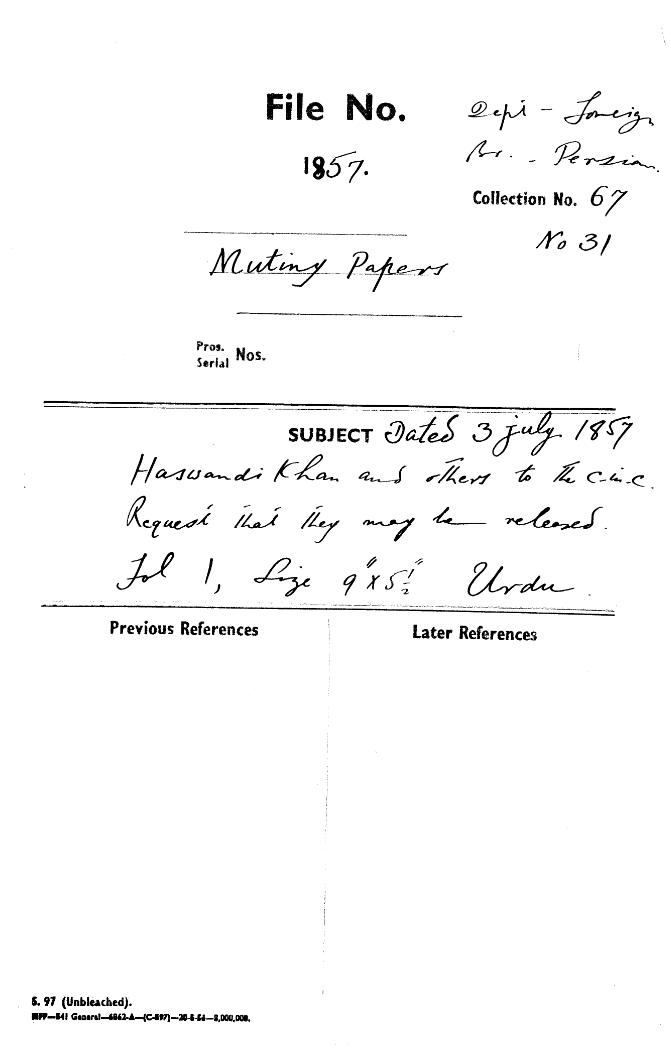 File No.
Dept - Foreign
1857.
Br. - Persian.
Collection No. 67
No 31
Mutiny Papers
Pros.
Serial Nos.
SUBJECT Dated 3 july 1857
Haswandi Khan and others to the C-in-C.
Request that they may be released.
Fol 1, Size 9" x 5½" Urdu.
Previous References
Later References
S. 97 (Unbleached).